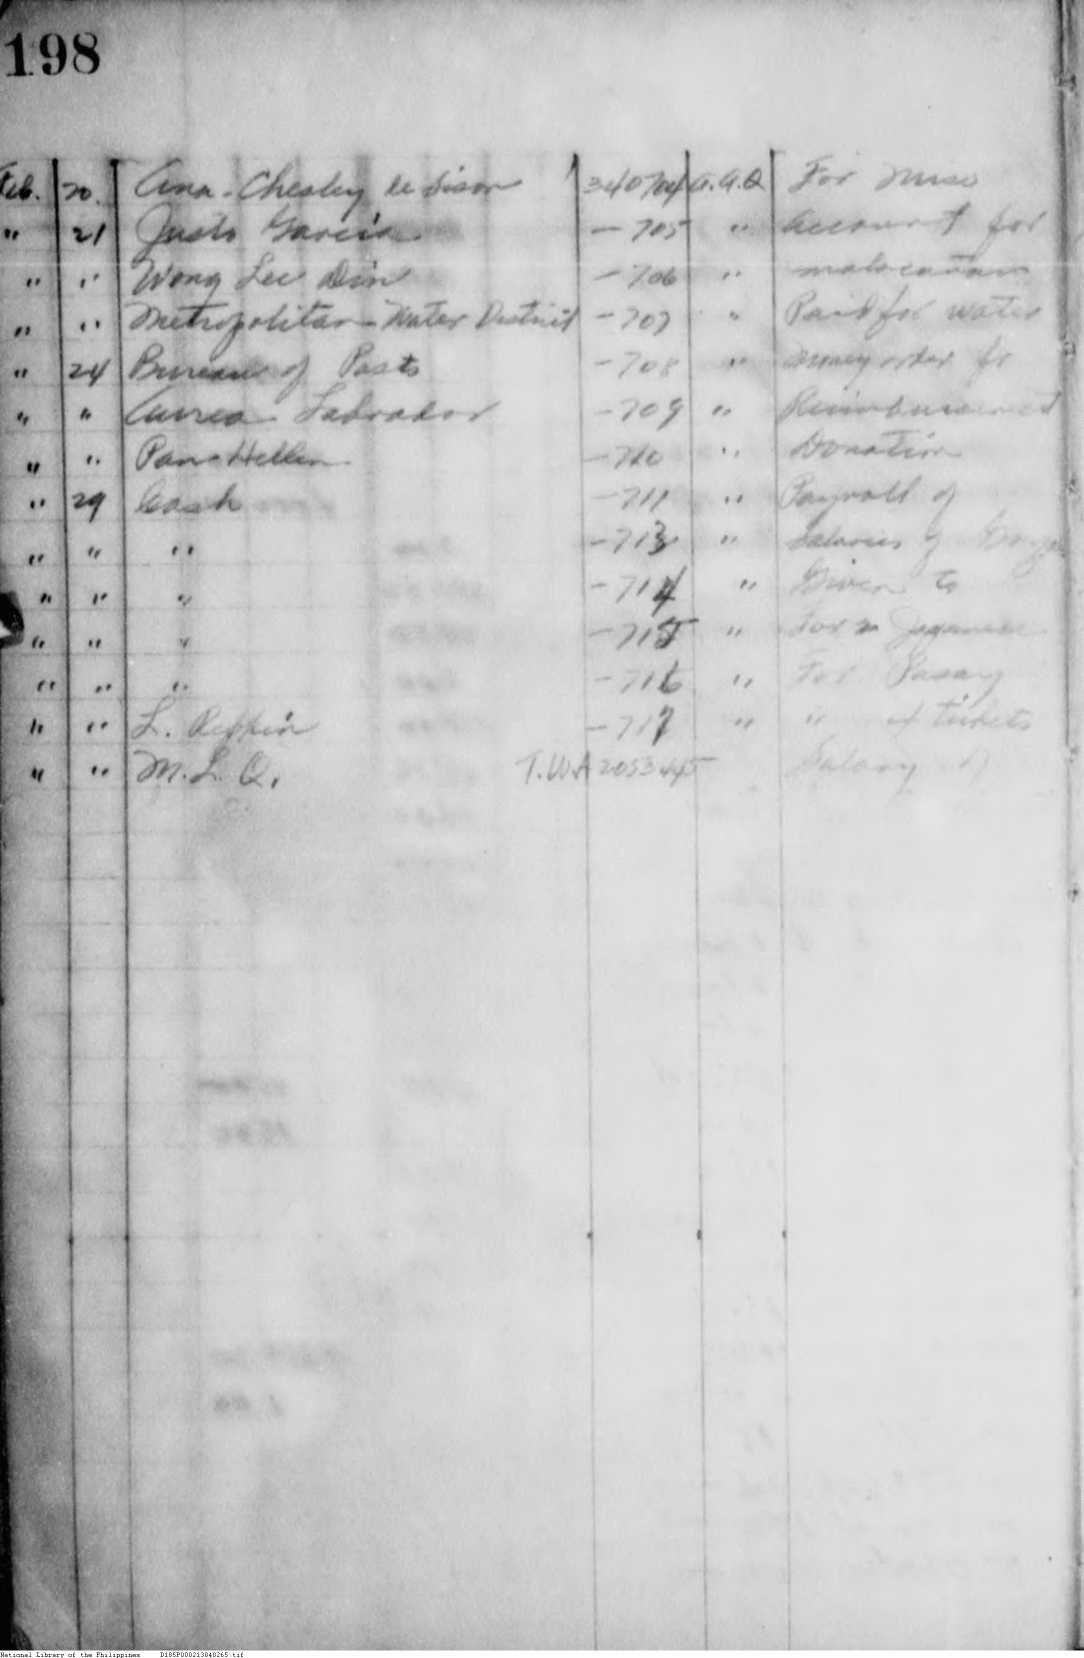 198
Feb. 20. Ana Chesley de Sison 340704 A.A.Q For Miss
" 21 Justo Garcia — 705 " account for
" " Wong Lee Din — 706 "
" " Metropolitan Water District — 707 " Paid for water
" 24 Bureau of Posts — 708 " money order for
" " Aurea Labrador — 709 " Reimbursement
" " Pan Hellen — 710 " Donation
" 29 Cash — 711 " Payroll of
" " " — 713 " Salaries of
" " " — 714 " Given to
" " " — 715 " For Japanese
" " " — 716 " For Pasay
" " L. — 717 " " of tickets
" " M. L. Q. T.W.A 2053445 Salary of
National Library of the Philippines D185P000213840265.tif